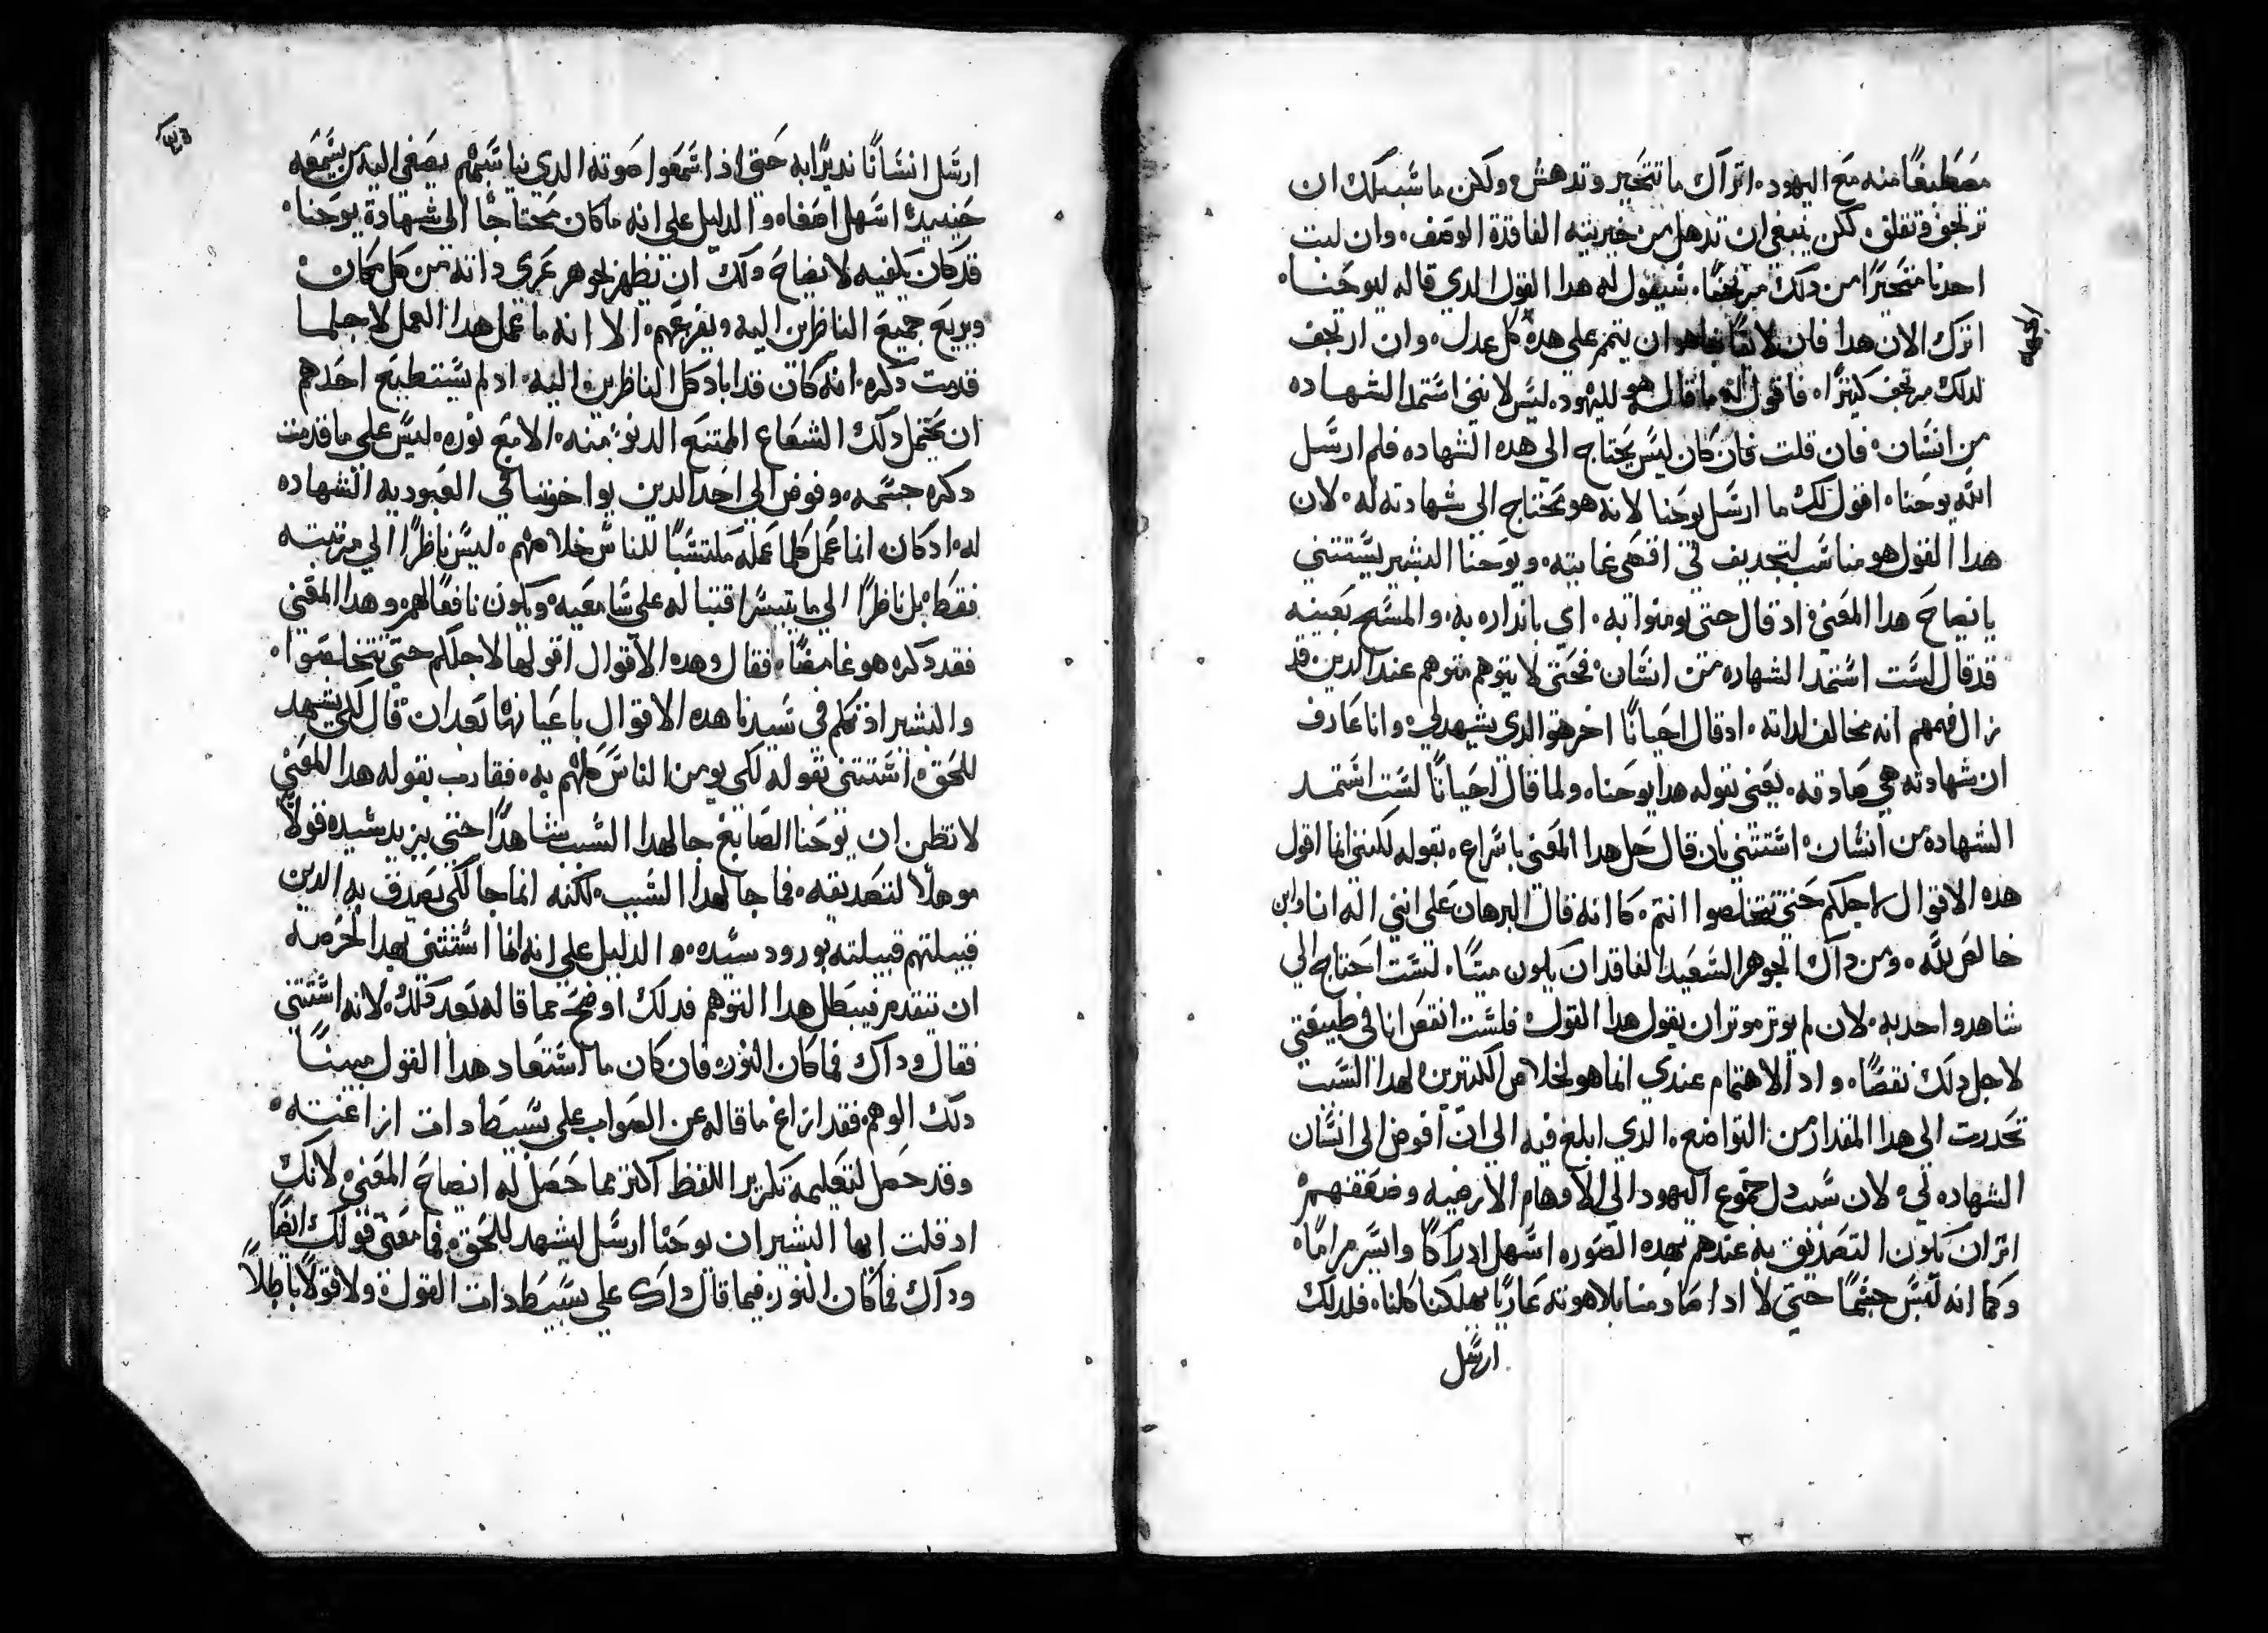 مصطبغًا منه مع اليهود. اتراك ما تتحير وتدهش. ولكن ما سبيلك ان
ترتجف وتقلق. لكن ينبغي ان تدهل من خيريته الفاقدة الوصف. وان لبت
احدنا متحيرًا من دلك مرتجفًا. سيقول له هدا القول الدي قاله ليوحنا.
اترك الان هدا فان لايقًا بنا هو ان يتمم على هده كل عدل. وان ارتجف
لدلك مرتجف كتيرًا. فاقول له ما قاله هو لليهود. ليس لانني استمد الشهاده
من انسان. فان قلت فان كان ليس يحتاج الي هده الشهاده فلم ارسل
الله يوحنا. اقول لك ما ارسل يوحنا لانه هو محتاج الي شهادته له. لان
هدا القول هو مناسب لتجديف في اقصى غايته. ويوحنا البشير يستتني
بايضاح هدا المعني. اد قال حتى يومنوا به. اي بانداره به. والمسيح بعينه
قد قال لست استمد الشهاده من انسان. فحتى لا يتوهم متوهم عند الدين قد
زال فهمهم انه مخالف لداته. اد قال احيانًا اخر هو الدي يشهد لي. وانا عارف
ان شهادته هي صادقه. يعني بقوله هدا يوحنا. ولما قال احيانًا لست استمد
الشهاده من انسان. استتنى بان قال حل هدا المعني باسراع. بقوله لكنني انما اقول
هده الاقوال لاجلكم حتى تتخلصوا انتم. كما انه قال البرهان على انني اله انا وابن
خالص لله. ومن داك الجوهر السعيد الفاقد ان يكون ميتًا. لست احتاج الي
شاهد واحد به. لان لم يوتر موتر ان يقول هدا القول. فلست انقص انا في طبيعتي
لاجل دلك نقصًا. واد الاهتمام عندي انما هو لخلاص الكتيرين. لهدا السبب
تحدرت الى هدا المقدار من التواضع. الدي ابلغ فيه الى ان افوض الى انسان
الشهاده لي. لان سبب دل جموع اليهود الي الاوهام الارضيه وضعفهم
اتر ان يكون التصديق به عندهم بهده الصوره اسهل ادراكًا وايسر مرامًا.
وكما انه لبس جسمًا حتى لا ادا صادمنا بلاهوته عاريًا يهلكنا كلنا. فلدلك
ارسل
ارسل انسانًا نديرًا به حتى اذا سمعوا صوته الدي يناسبهم يصغي اليه من يسمعه
حينيد اسهل اصغاه. والدليل على انه ما كان محتاجًا الى شهادة يوحنا.
قد كان يكفيه لايضاح دلك ان تظهر جوهر عري داته من كل مكان.
ويريع جميع الناظرين اليه ويفزعهم. الا انه ما عمل هدا العمل لاجل ما
قدمت دكره. انه كان قد اباد كل الناظرين اليه. اد لم يستطيع احدهم
ان يحتمل دلك الشعاع الممتنع الدنو منه. الامع نوره. ليس على ما قدمت
دكره جسمه. وفوض الي احد الدين يواخوننا في العبوديه الشهاده
له. اد كان انما عمل كلما عمله ملتمسًا للناس خلاصهم. ليس ناظرًا الي مرتبته
فقط. بل ناظرًا الي ما يتيسر اقتباله على سامعيه ويكون نافعًا لهم. وهدا المعني
فقد دكره هو غامضًا. فقال وهده الاقوال اقولها لاجلكم حتى تتخلصوا.
والبشير اذ تكلم في سيدنا هده الاقوال باعيانها بعد ان قال لكي يشهد
للحق. استتنى بقوله لكي يومن الناس كلهم به. فقارب بقوله هدا المعني
لا تظن ان يوحنا الصابغ جا لهدا السبب شاهدًا حتى يزيد سيده قولًا
موهلًا لتصديقه. فما جا لهدا السبب. لكنه انما جا لكي يصدق به الدين
قبيلتهم قبيلته بورود سيده. والدليل علي انه انما استتنى بهدا لحرصه
ان يتقدم فيبطل هدا التوهم فدلك اوضح مما قاله بعد دلك. لانه استتنى
فقال وداك فما كان النور. فان كان ما استعاد هدا القول مبينًا
دلك الوهم. فقد ازاغ ما قاله عن الصواب على بسيط دات ازاغته.
وقد حصل لتعليمه تكرير اللفظ اكتر مما حصل له ايضاح المعني. لانك
اد قلت ايها البشير ان يوحنا ارسل ليشهد للحق. فما معني قولك ايضًا
وداك فما كان النور. فيما قال داك علي بسيط ذات القول. ولا قولًا باطلًا